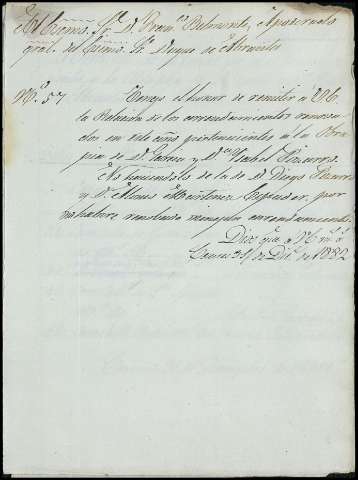 Excmo. Sr. D. Franco. Belmonte, Apoderado
gral. del Excmo. Sr. Duque de Abrantes
No. 57
Tengo el honor de remitir a V.E.
la Relacion de los arrendamientos renova-
dos en este año pertenecientes a la Obra
pia de D. Garcia y Da. Isabel Pizarro.
No haciendolo de la de D. Diego Pizarro
y D. Alonso por
no haberse renovado ningun arrendamiento
Dios gue. a V.E. ms. as.
31 de Dice. de 1882